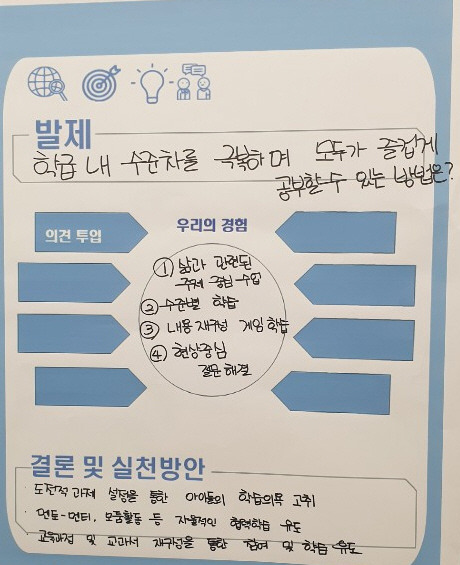 발제
학급 내 수준차를 극복하며 모두가 즐겁게
공부할 수 있는 방법은?
의견 투입
우리의 경험
① 삶과 관련된
주제 중심 수업
② 수준별 학습
③ 내용 재구성 게임 학습
④ 현상중심
질문 해결
결론 및 실천방안
· 도전적 과제 설정을 통한 아이들의 학습의욕 고취
· 멘토-멘티, 모둠활동 등 자율적인 협력학습 유도
· 교육과정 및 교과서 재구성을 통한 참여 및 학습 유도